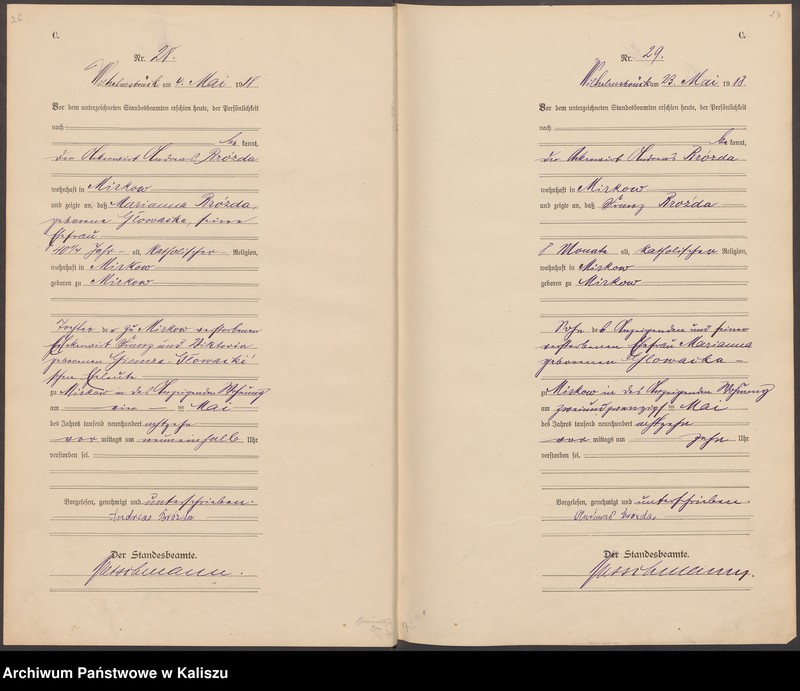 26
C.
Nr. 28.
Wilhelmsbrück am 4. Mai 1918.
Vor dem unterzeichneten Standesbeamten erschien heute, der Persönlichkeit
nach
be kannt,
der Ackerwirt Andreas Brózda
wohnhaft in Mirkow
und zeigte an, daß Marianna Brózda,
geborene Głowacka, seine
Ehefrau
40¼ Jahr alt, katholischer Religion,
wohnhaft in Mirkow
geboren zu Mirkow
Tochter der zu Mirkow verstorbenen
Ackerwirt Franz und Viktoria
geborenen
schen Eheleute
zu Mirkow in des Anzeigenden Wohnung
am ein ten Mai
des Jahres tausend neunhundert achtzehn
vor mittags um neuneinhalb Uhr
verstorben sei.
Vorgelesen, genehmigt und unterschrieben.
Andreas Brózda
Der Standesbeamte.
C.
Nr. 29.
Wilhelmsbrück am 23. Mai 1918.
Vor dem unterzeichneten Standesbeamten erschien heute, der Persönlichkeit
nach
be kannt,
der Ackerwirt Andreas Brózda
wohnhaft in Mirkow
und zeigte an, daß Franz Brózda
8 Monate alt, katholischer Religion,
wohnhaft in Mirkow
geboren zu Mirkow
Sohn des Anzeigenden und seiner
verstorbenen Ehefrau Marianna
geborenen Głowacka
zu Mirkow in des Anzeigenden Wohnung
am zweiundzwanzigsten Mai
des Jahres tausend neunhundert achtzehn
vor mittags um zehn Uhr
verstorben sei.
Vorgelesen, genehmigt und unterschrieben.
Andreas Brozda
Der Standesbeamte.
Archiwum Państwowe w Kaliszu